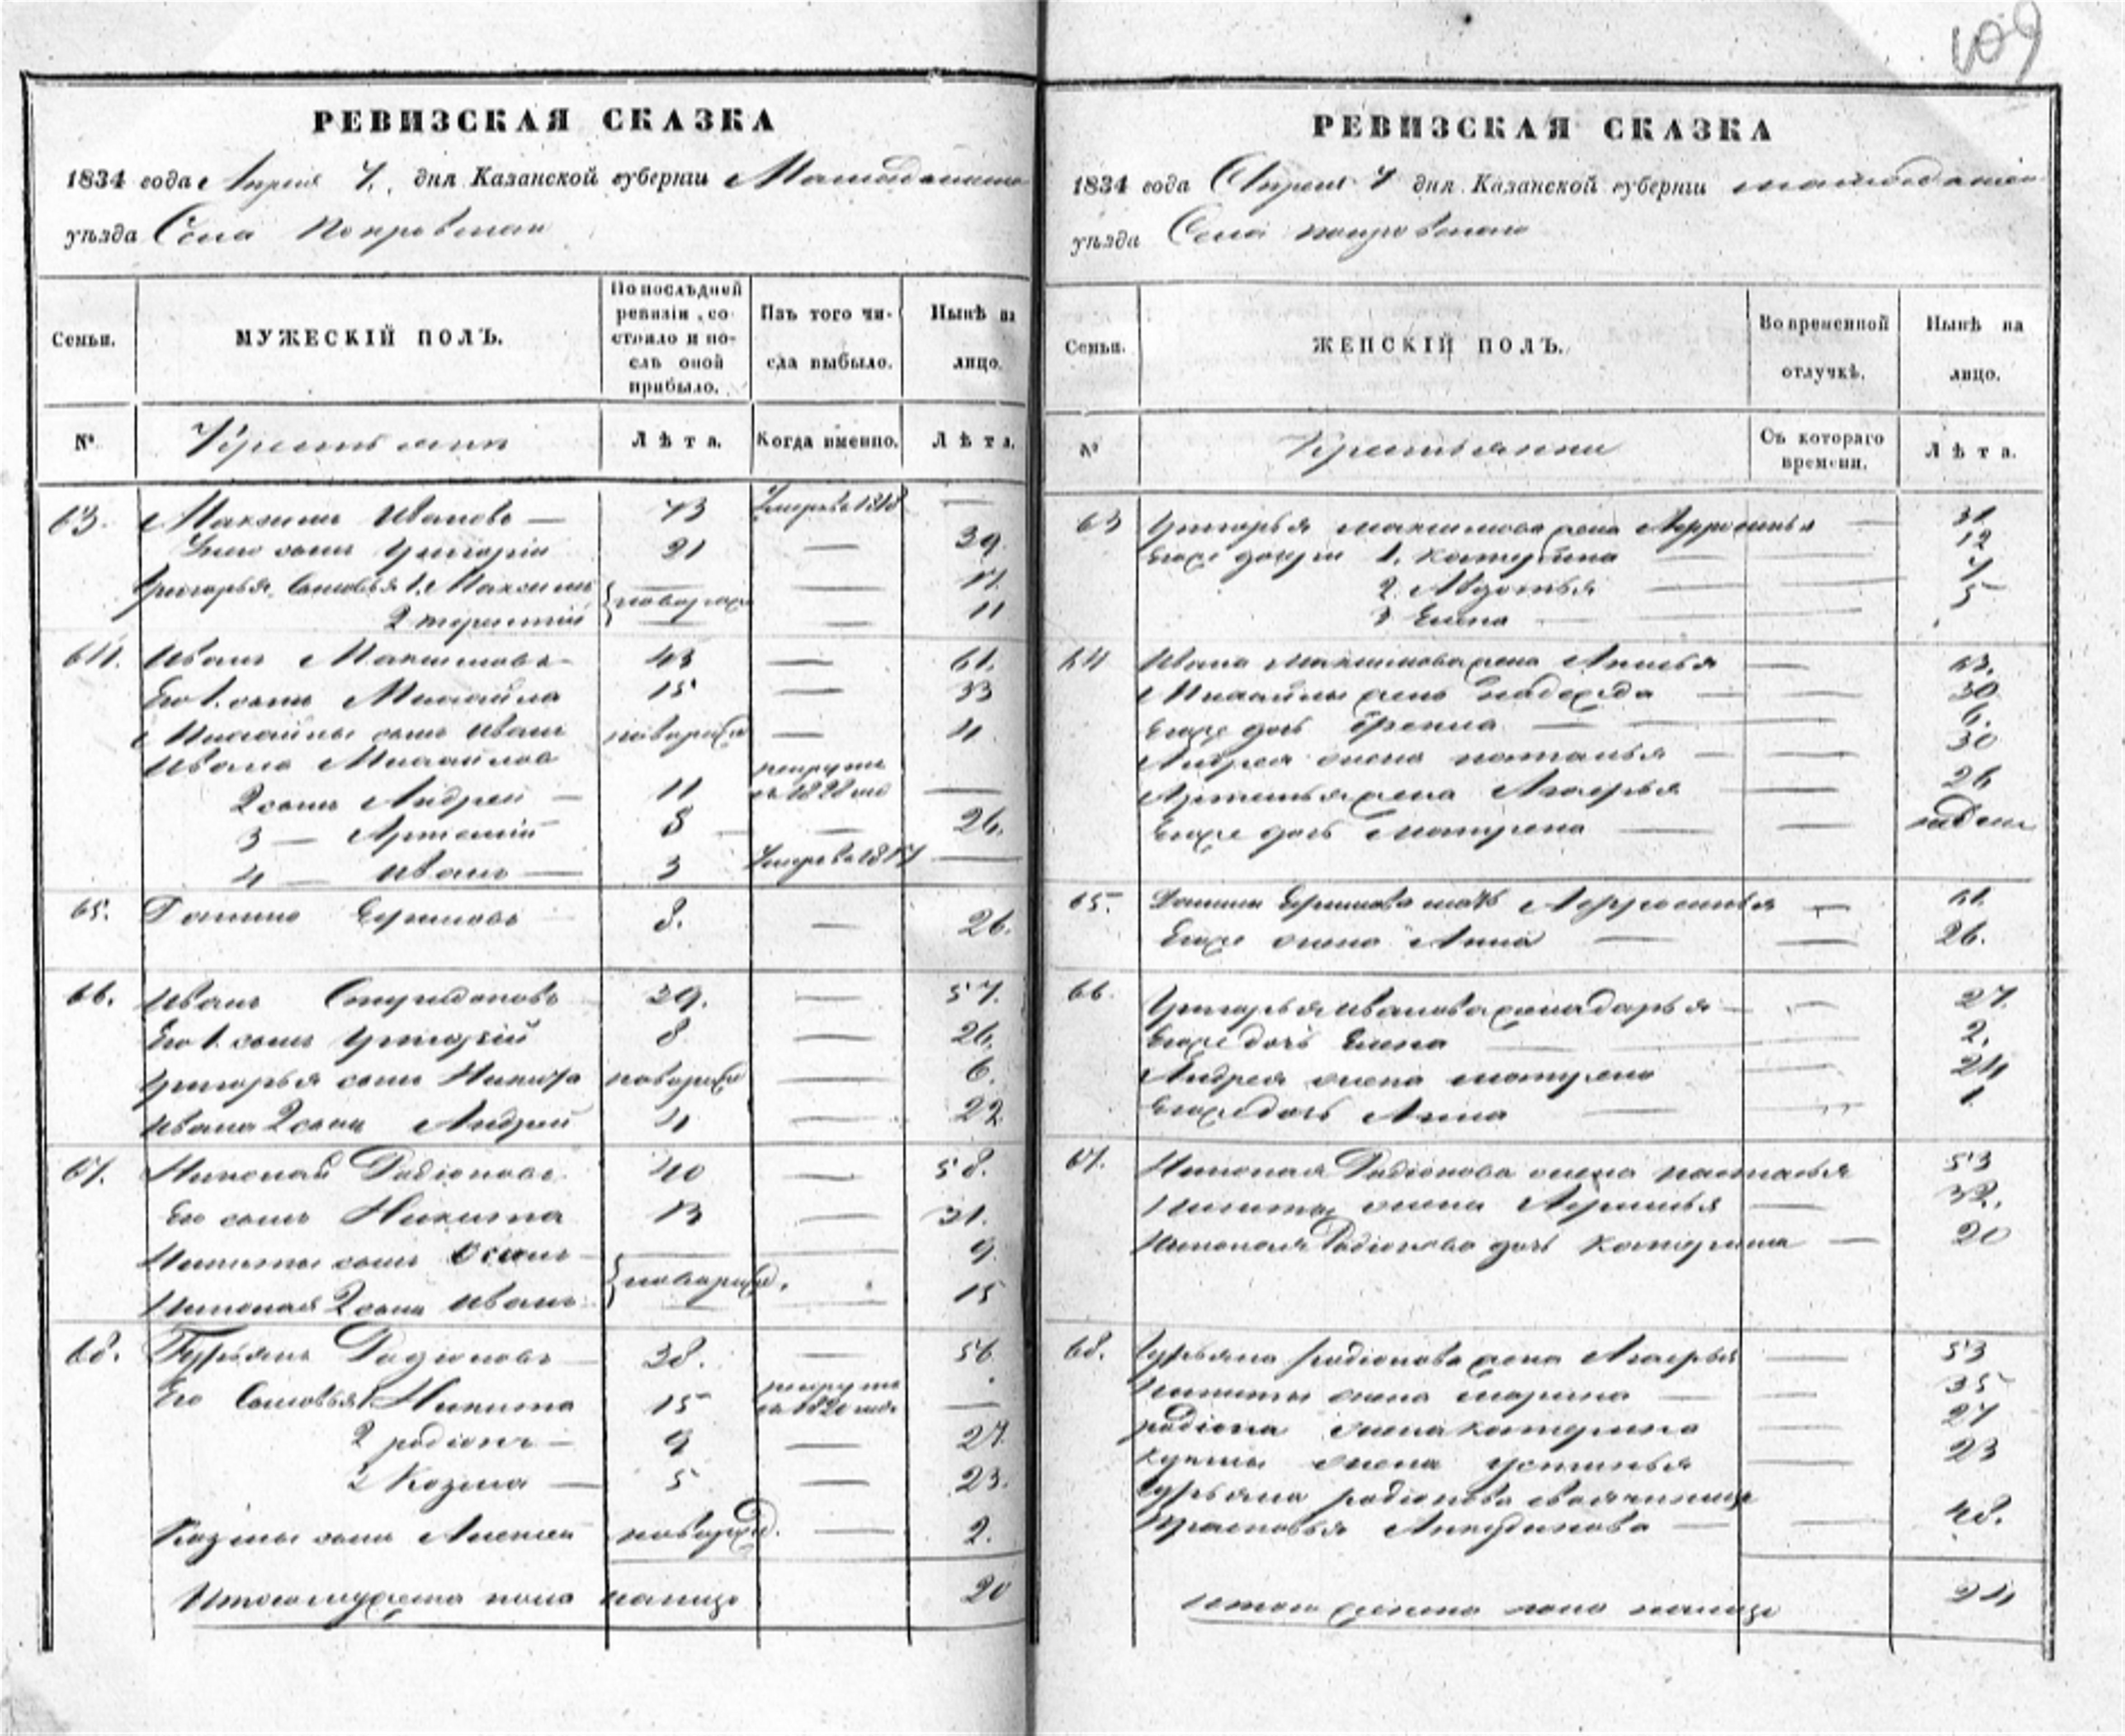 109
РЕВИЗСКАЯ СКАЗКА
1834 года Апреля 7. дня Казанской губернии Мамадышского
уѣзда Села Покровскаго
Семьи.
МУЖЕСКІЙ ПОЛЪ.
По послѣдней ревизіи состояло и послѣ оной прибыло.
Изъ того числа выбыло.
Нынѣ на лицо.
№
Крестьяне
Лѣта.
Когда именно.
Лѣта.
63. Максимъ Ивановъ — 73 Умеръ въ 1818 —
Его сынъ Григорій 21 — 39.
Григорья Сыновья 1. Максимъ — 17.
новорожд
2 терентій — 11
64. Иванъ Максимовъ 43 — 61.
Его 1. сынъ Михайла 15 — 33
Михайлы сынъ Иванъ новорожд — 4
Ивана
2 сынъ Андрей — 11 рекрутъ въ 1828 год —
3 — Артемій 8 — 26.
4 — Иванъ — 3 Умеръ въ —
65. 8. — 26.
66. Иванъ Спиридоновъ 39. — 57.
Его 1. сынъ Григорій 8 — 26.
Григорья сынъ Никита новорожд — 6.
Ивана 2 сынъ Андрей 4 — 22
67. Николай Радіоновъ 40 — 58.
Его сынъ Никита 13 — 31.
Никиты сынъ Осипъ — 9.
новорожд.
Николая 2 сынъ Иванъ — 15
68. Гурьянъ Радіоновъ 38. — 56
Его Сыновья 1 Никита 15 рекрутъ —
2 родіонъ — 9 — 27.
3 Козма — 5 — 23.
Козмы сынъ Алексей новорожд. — 2.
Итого мужеска пола налицо 20
РЕВИЗСКАЯ СКАЗКА
1834 года Апреля 7 дня Казанской губерніи мамадышскаго
уѣзда Села покровскаго
Семьи.
ЖЕНСКІЙ ПОЛЪ.
Во временной отлучкѣ.
Нынѣ на лицо.
№
Крестьянки
Съ котораго времени.
Лѣта.
63 Григорья максимова жена 31
Ево же дочери 1. катерина — 12
2. Авдотья — 7
3 Елена — 5
64 Ивана максимова жена Анисья — 63.
Михайлы жена надежда — 30
Ево же дочь — 6.
Андрея жена наталья — 30
Артемья жена — 26
Ево же дочь матрена — недели
65. 61.
Ево же жена Анна — 26.
66. Григорья Иванова жена дарья — 27.
Ево же дочь Елена — 2.
Андрея жена матрена — 24
Ево же дочь Анна — 1
67. Николая Радіонова жена наталья 53
Никиты жена — 32.
Николая Радіонова дочь катерина — 20
68. Гурьяна родіонова жена — 53
Никиты жена марина — 35
родіона жена катерина 27
кузмы жена устинья — 23
Гурьяна родіонова своячиница
— 48.
итого женска пола налицо 24